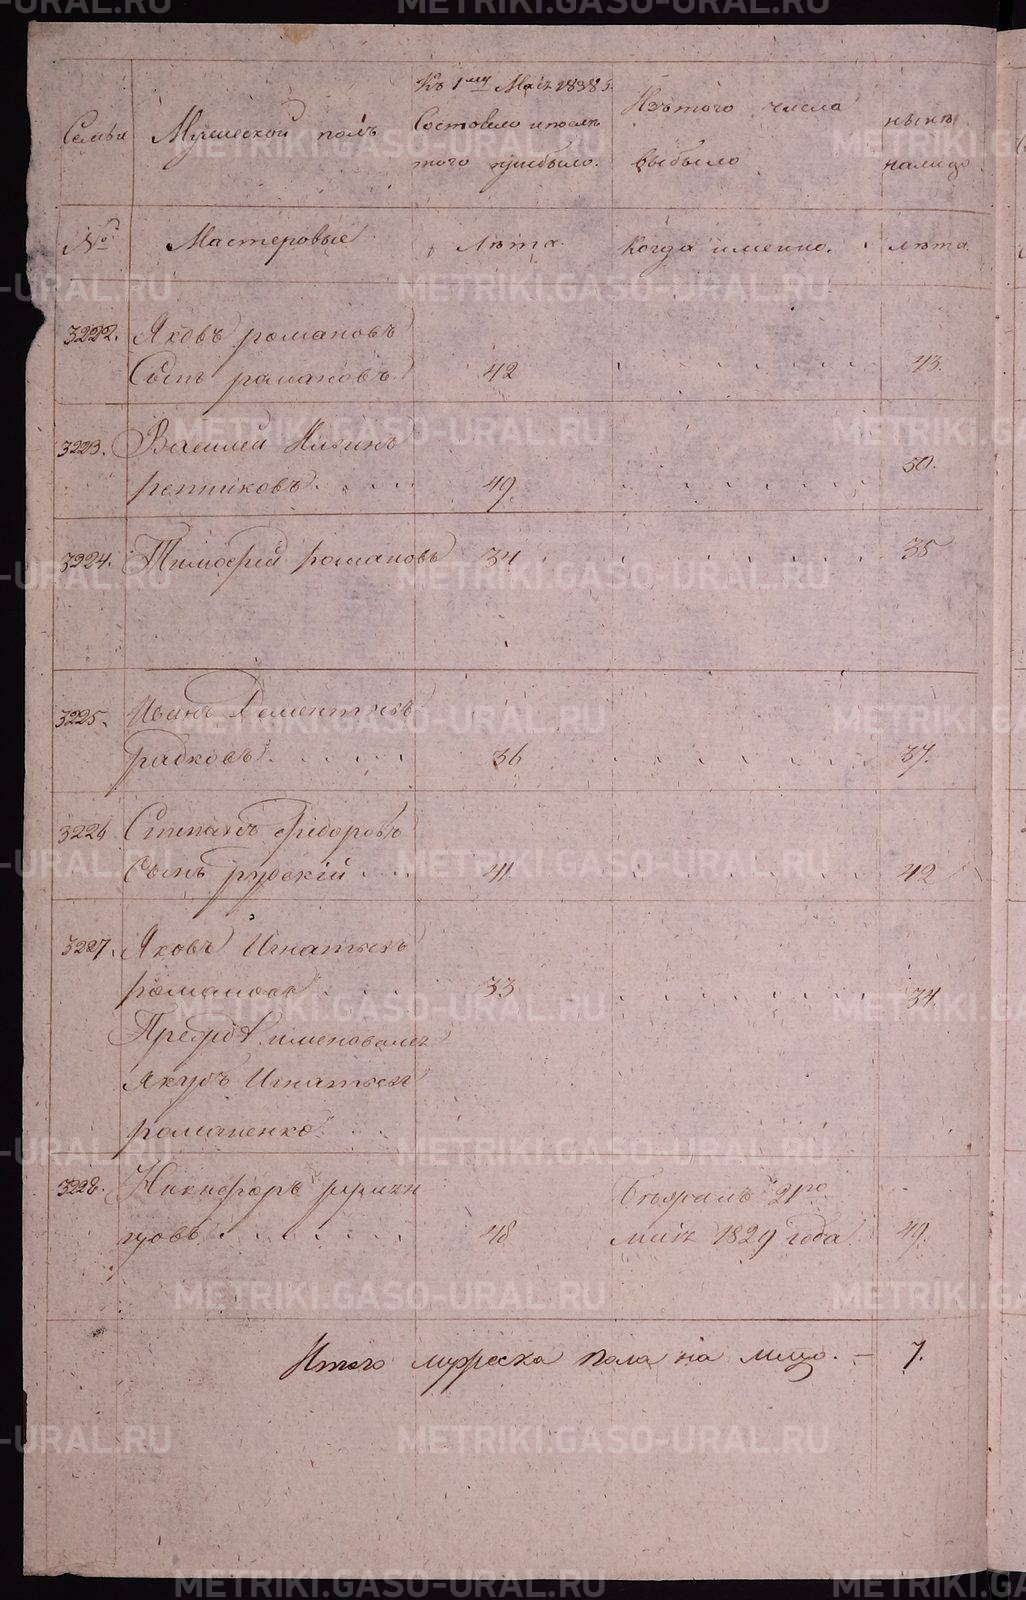 Семьи
Мужеской полъ
Къ 1му Маія 1838 г.
Состояло и послѣ
того прибыло.
Изъ того числа
выбыло
нынѣ
на лицо
№
Мастеровые
Лѣта.
Когда именно.
лѣта
3222. Яковъ романовъ
Сынъ романовъ. 42 43.
3223. Василей Ильинъ
репниковъ. 49. 50.
3224. Тимофей романовъ 34 35
3225. Иванъ Дементьевъ
радковъ. 36 37.
3226 Степанъ Федоровъ
Сынъ рудскій 41 42
3227. Яковъ Игнатьевъ
романовъ. 33 34.
Прежде именовался
якубъ Игнатьевъ
романенко.
3228. Никифоръ
48 21го
маія 1829 года 49.
Итого мужеска пола на лицо. — 7.
METRIKI.GASO-URAL.RU